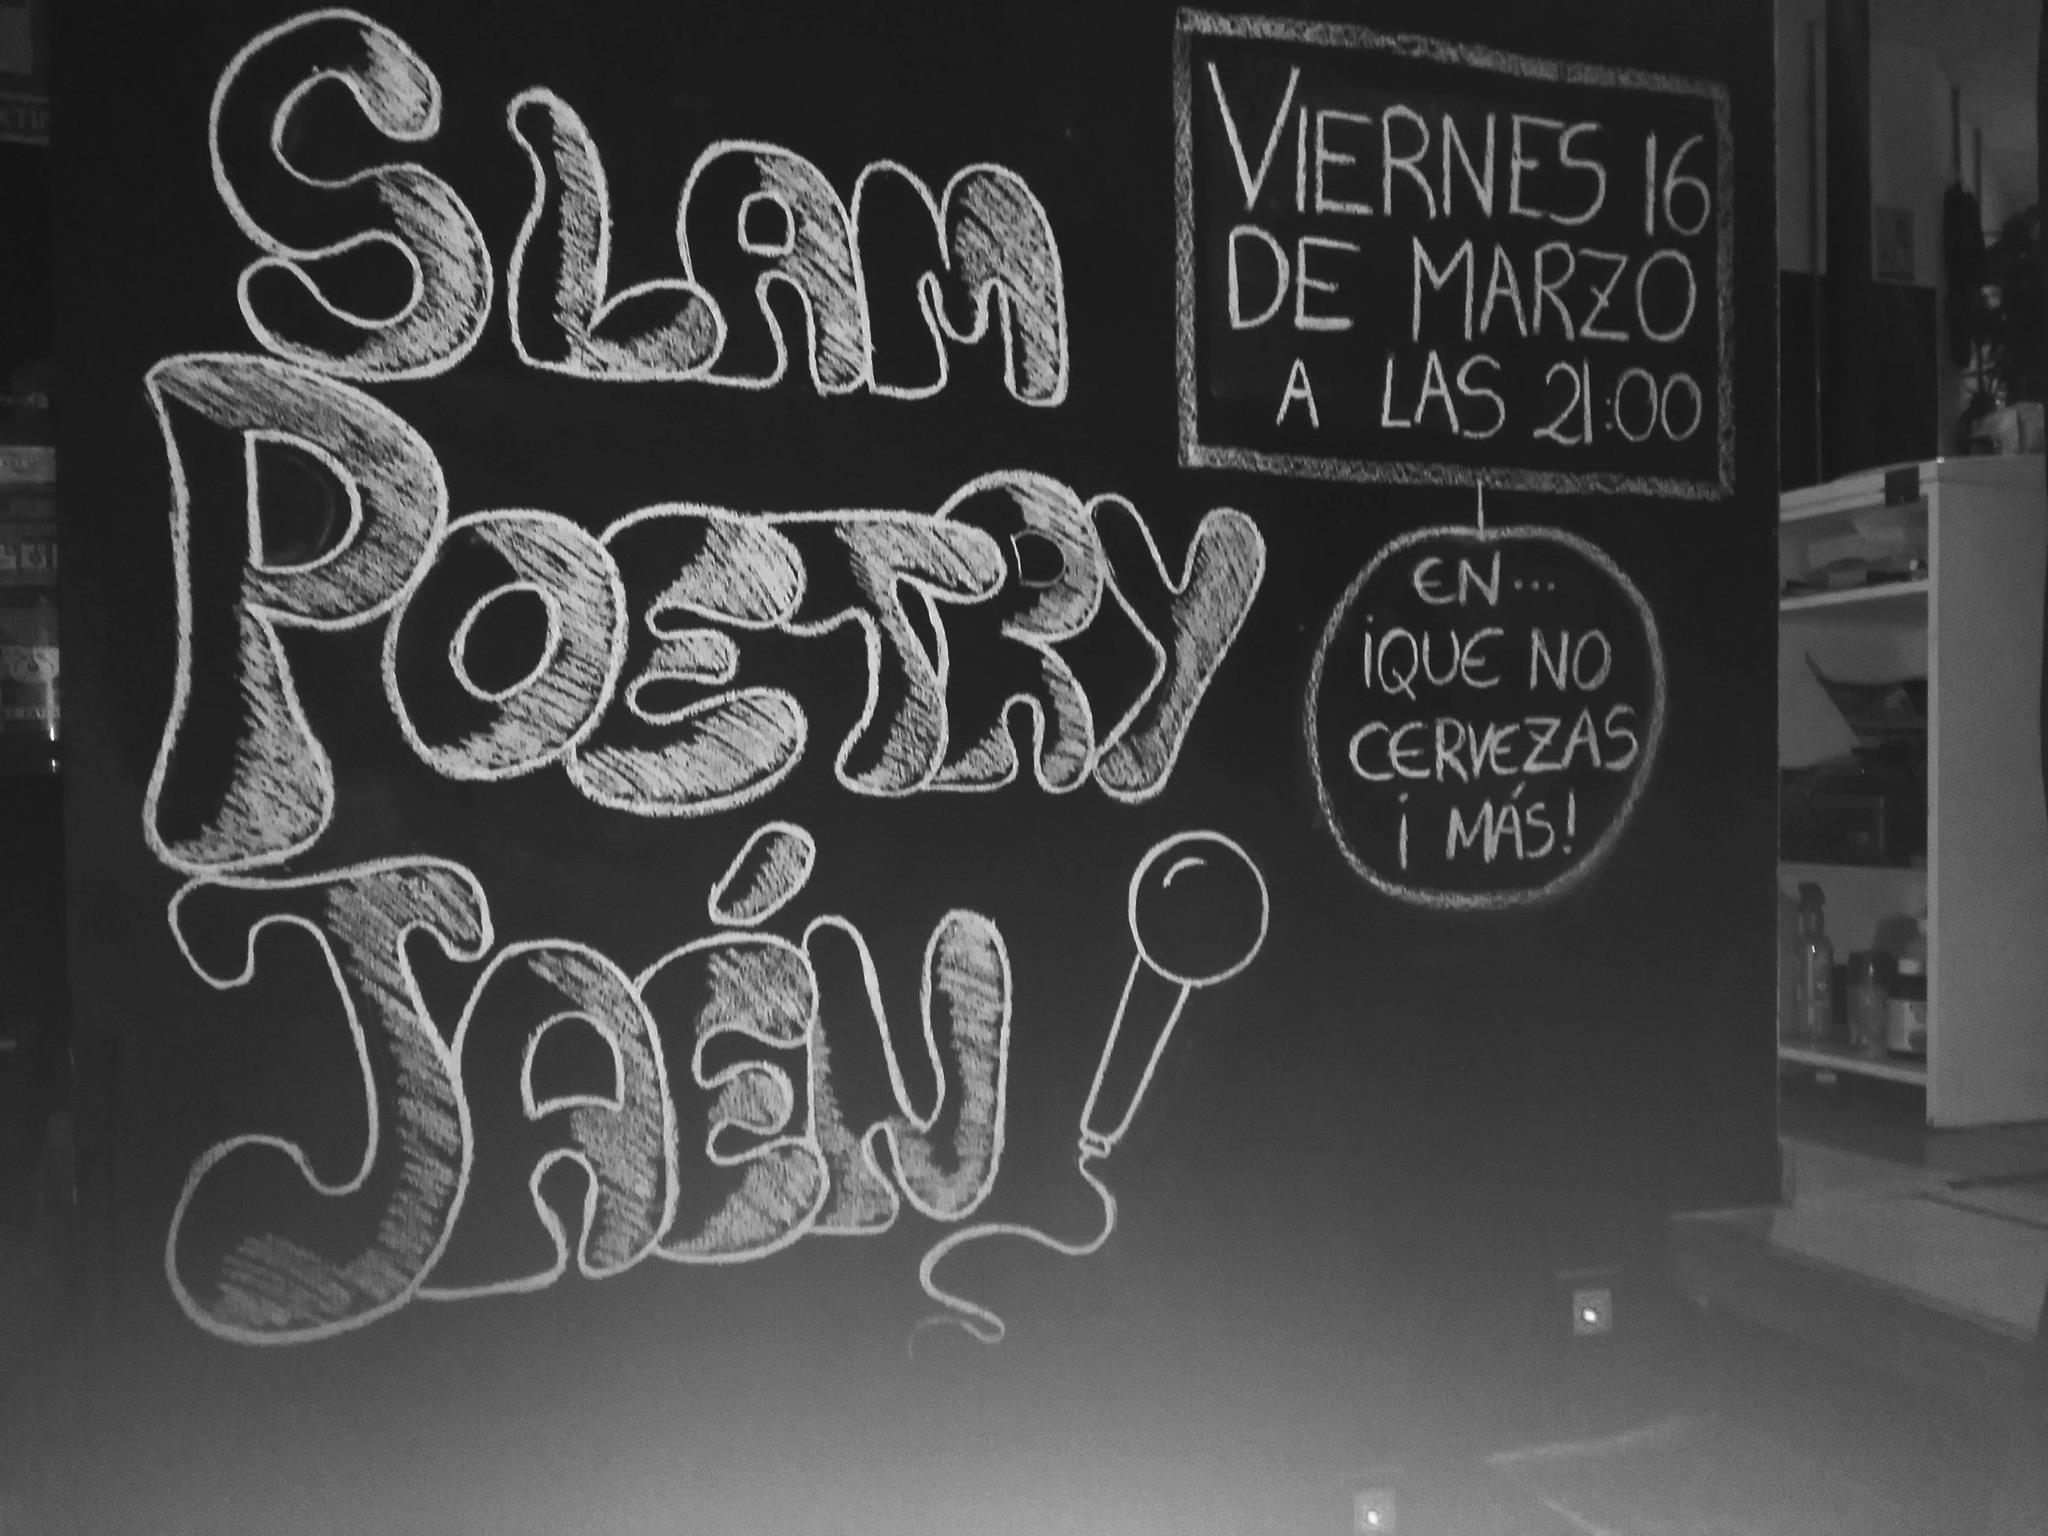 SLAM
POETRY
JAÉN
VIERNES 16
DE MARZO
A LAS 21:00
EN...
¡QUE NO
CERVEZAS
¡ MÁS!